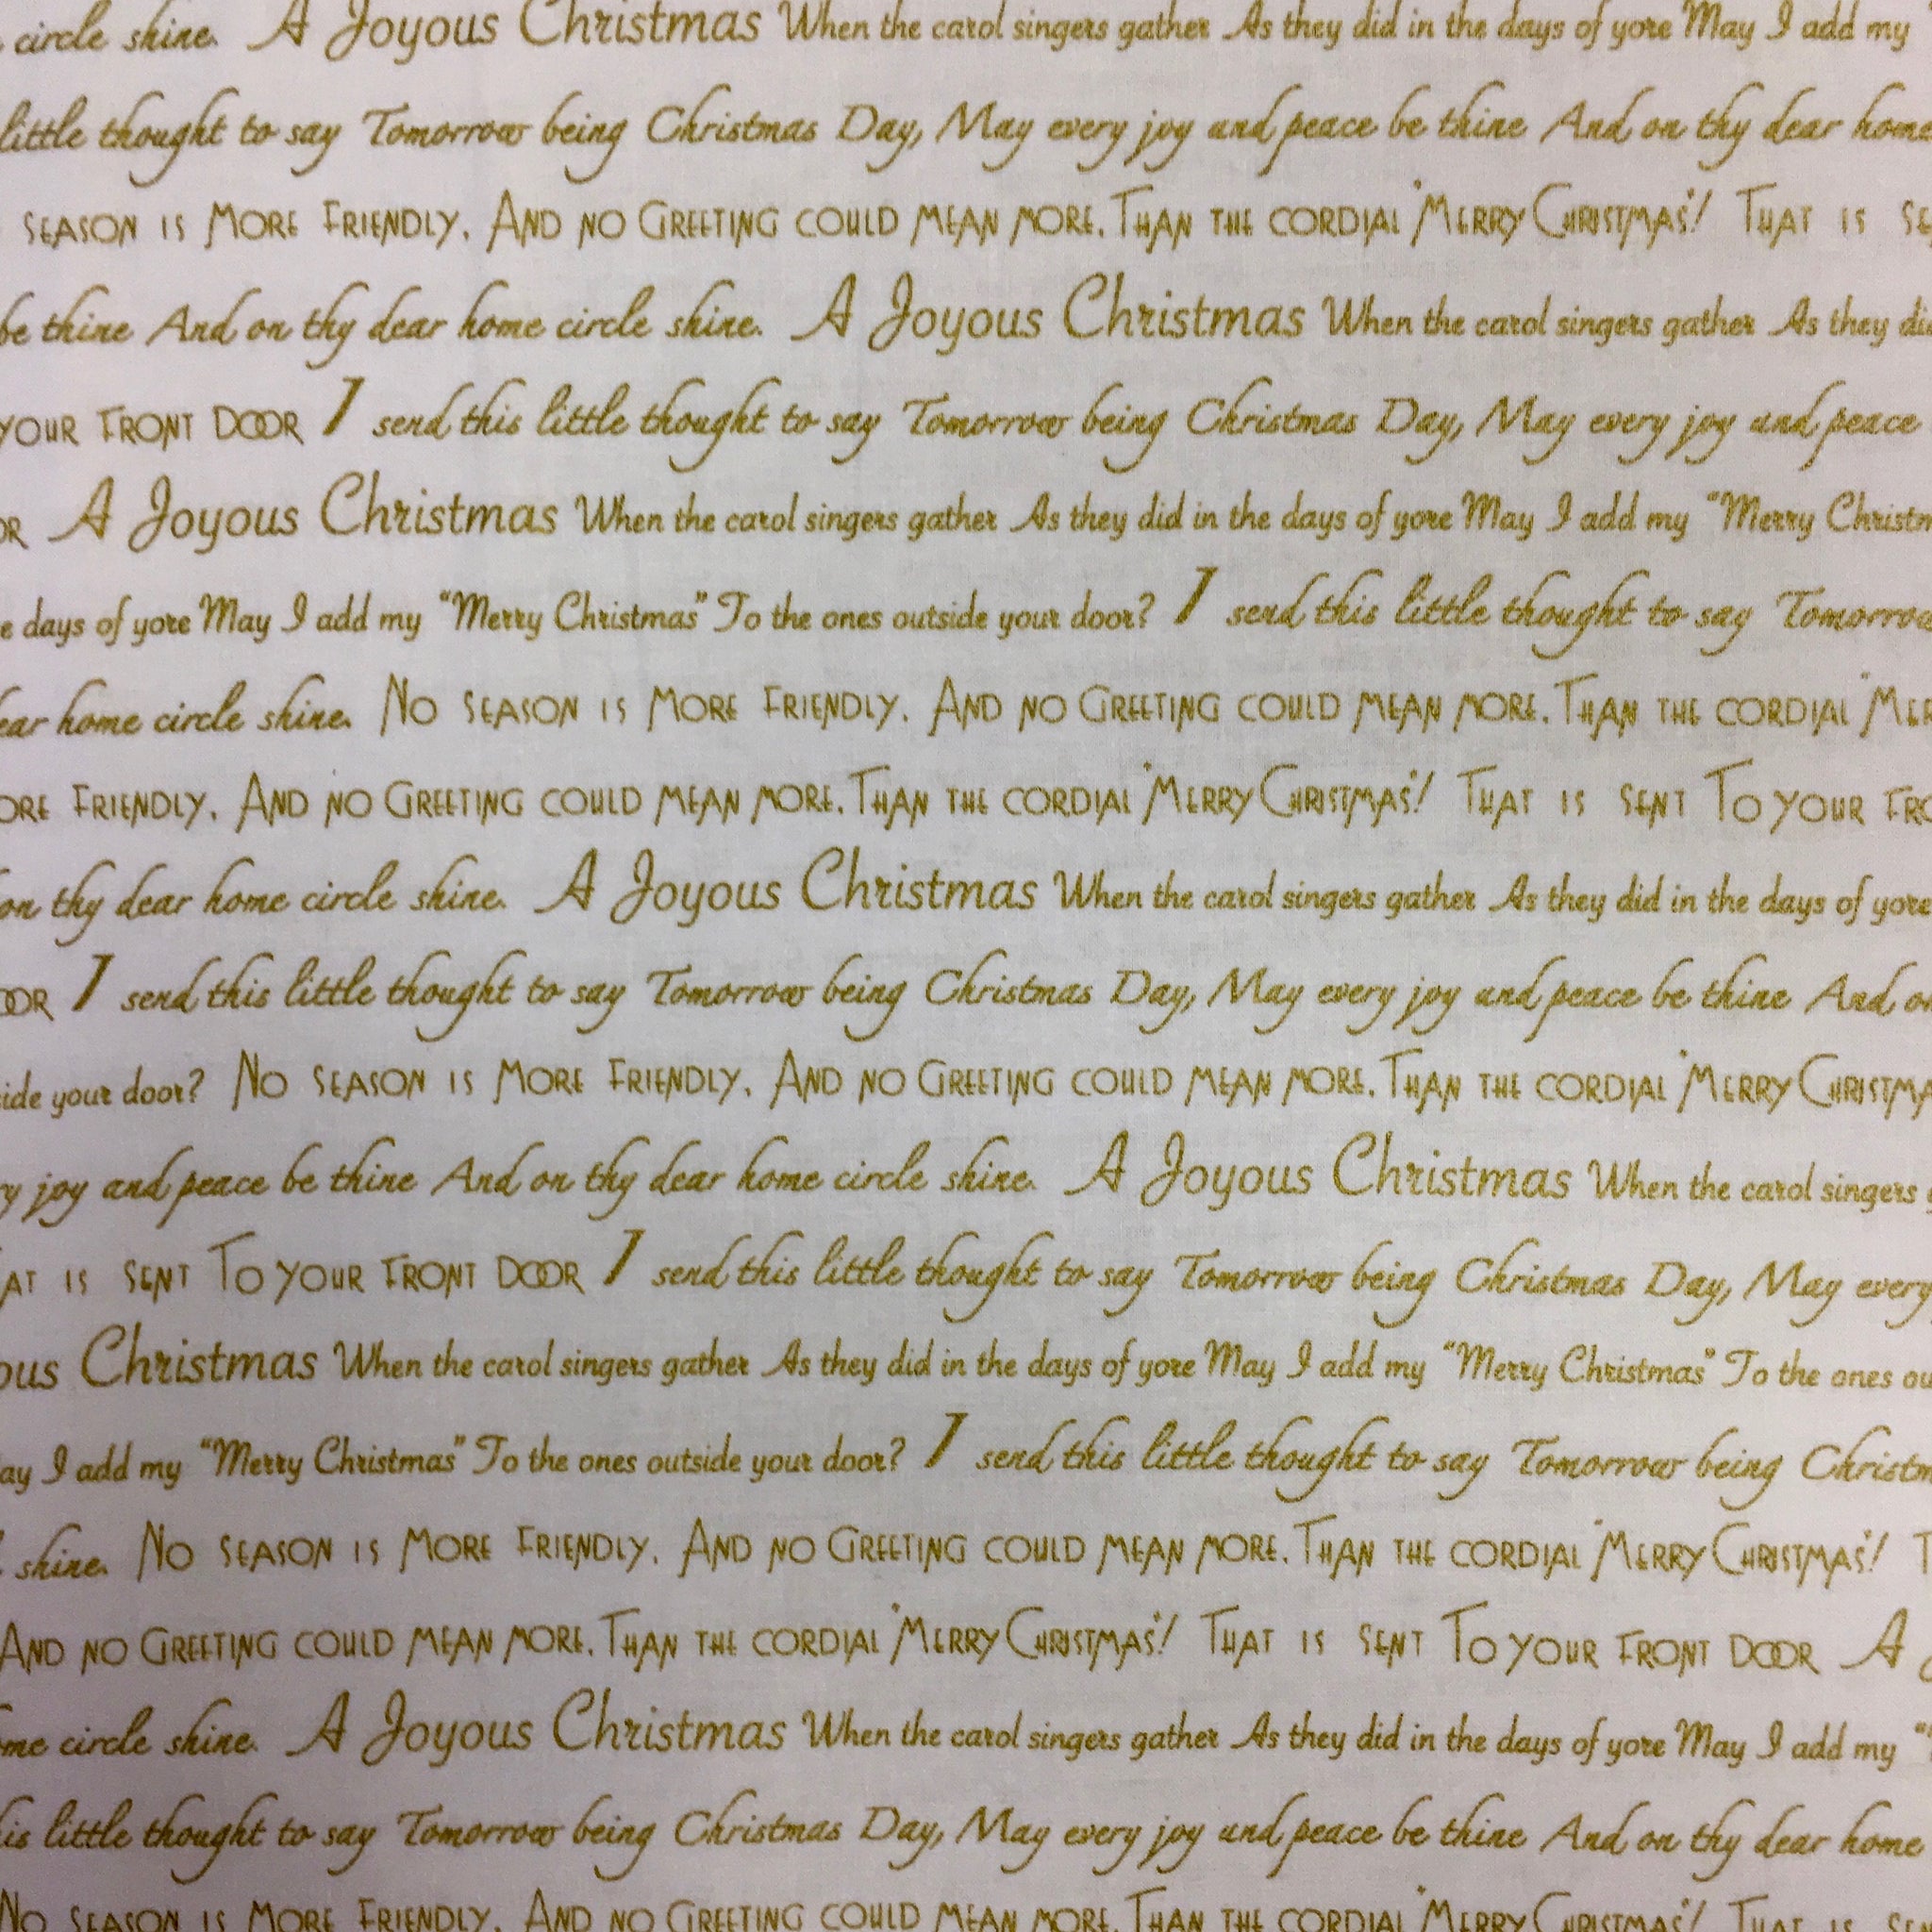 circle shine. A Joyous Christmas When the carol singers gather As they did in the days of yore May I add my
little thought to say Tomorrow being Christmas Day, May every joy and peace be thine And on thy dear home
SEASON IS MORE FRIENDLY. AND NO GREETING COULD MEAN MORE. THAN THE CORDIAL "MERRY CHRISTMAS"! THAT IS SE
be thine And on thy dear home circle shine. A Joyous Christmas When the carol singers gather As they did
YOUR FRONT DOOR I send this little thought to say Tomorrow being Christmas Day, May every joy and peace
OR A Joyous Christmas When the carol singers gather As they did in the days of yore May I add my "Merry Christm
e days of yore May I add my "Merry Christmas" To the ones outside your door? I send this little thought to say Tomorrow
ear home circle shine. NO SEASON IS MORE FRIENDLY. AND NO GREETING COULD MEAN MORE. THAN THE CORDIAL "MER
ORE FRIENDLY. AND NO GREETING COULD MEAN MORE. THAN THE CORDIAL "MERRY CHRISTMAS"! THAT IS SENT TO YOUR FRO
on thy dear home circle shine. A Joyous Christmas When the carol singers gather As they did in the days of yore
OOR I send this little thought to say Tomorrow being Christmas Day, May every joy and peace be thine And on
ide your door? NO SEASON IS MORE FRIENDLY. AND NO GREETING COULD MEAN MORE. THAN THE CORDIAL "MERRY CHRISTMA
ry joy and peace be thine And on thy dear home circle shine. A Joyous Christmas When the carol singers g
AT IS SENT TO YOUR FRONT DOOR I send this little thought to say Tomorrow being Christmas Day, May every
ous Christmas When the carol singers gather As they did in the days of yore May I add my "Merry Christmas" To the ones ou
ay I add my "Merry Christmas" To the ones outside your door? I send this little thought to say Tomorrow being Christm
shine. NO SEASON IS MORE FRIENDLY. AND NO GREETING COULD MEAN MORE. THAN THE CORDIAL "MERRY CHRISTMAS"! T
AND NO GREETING COULD MEAN MORE. THAN THE CORDIAL "MERRY CHRISTMAS"! THAT IS SENT TO YOUR FRONT DOOR A J
me circle shine. A Joyous Christmas When the carol singers gather As they did in the days of yore May I add my "
is little thought to say Tomorrow being Christmas Day, May every joy and peace be thine And on thy dear home
NO SEASON IS MORE FRIENDLY. AND NO GREETING COULD MEAN MORE. THAN THE CORDIAL "MERRY CHRISTMAS"! THAT IS SE